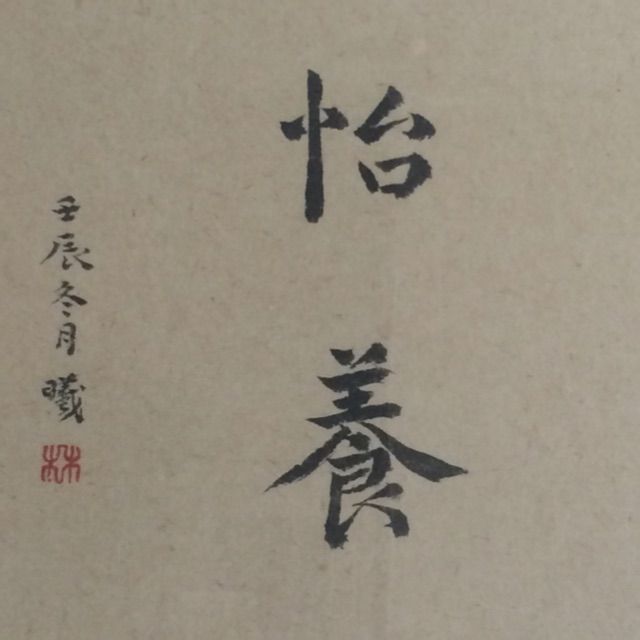 怡養
壬辰冬月曦
林